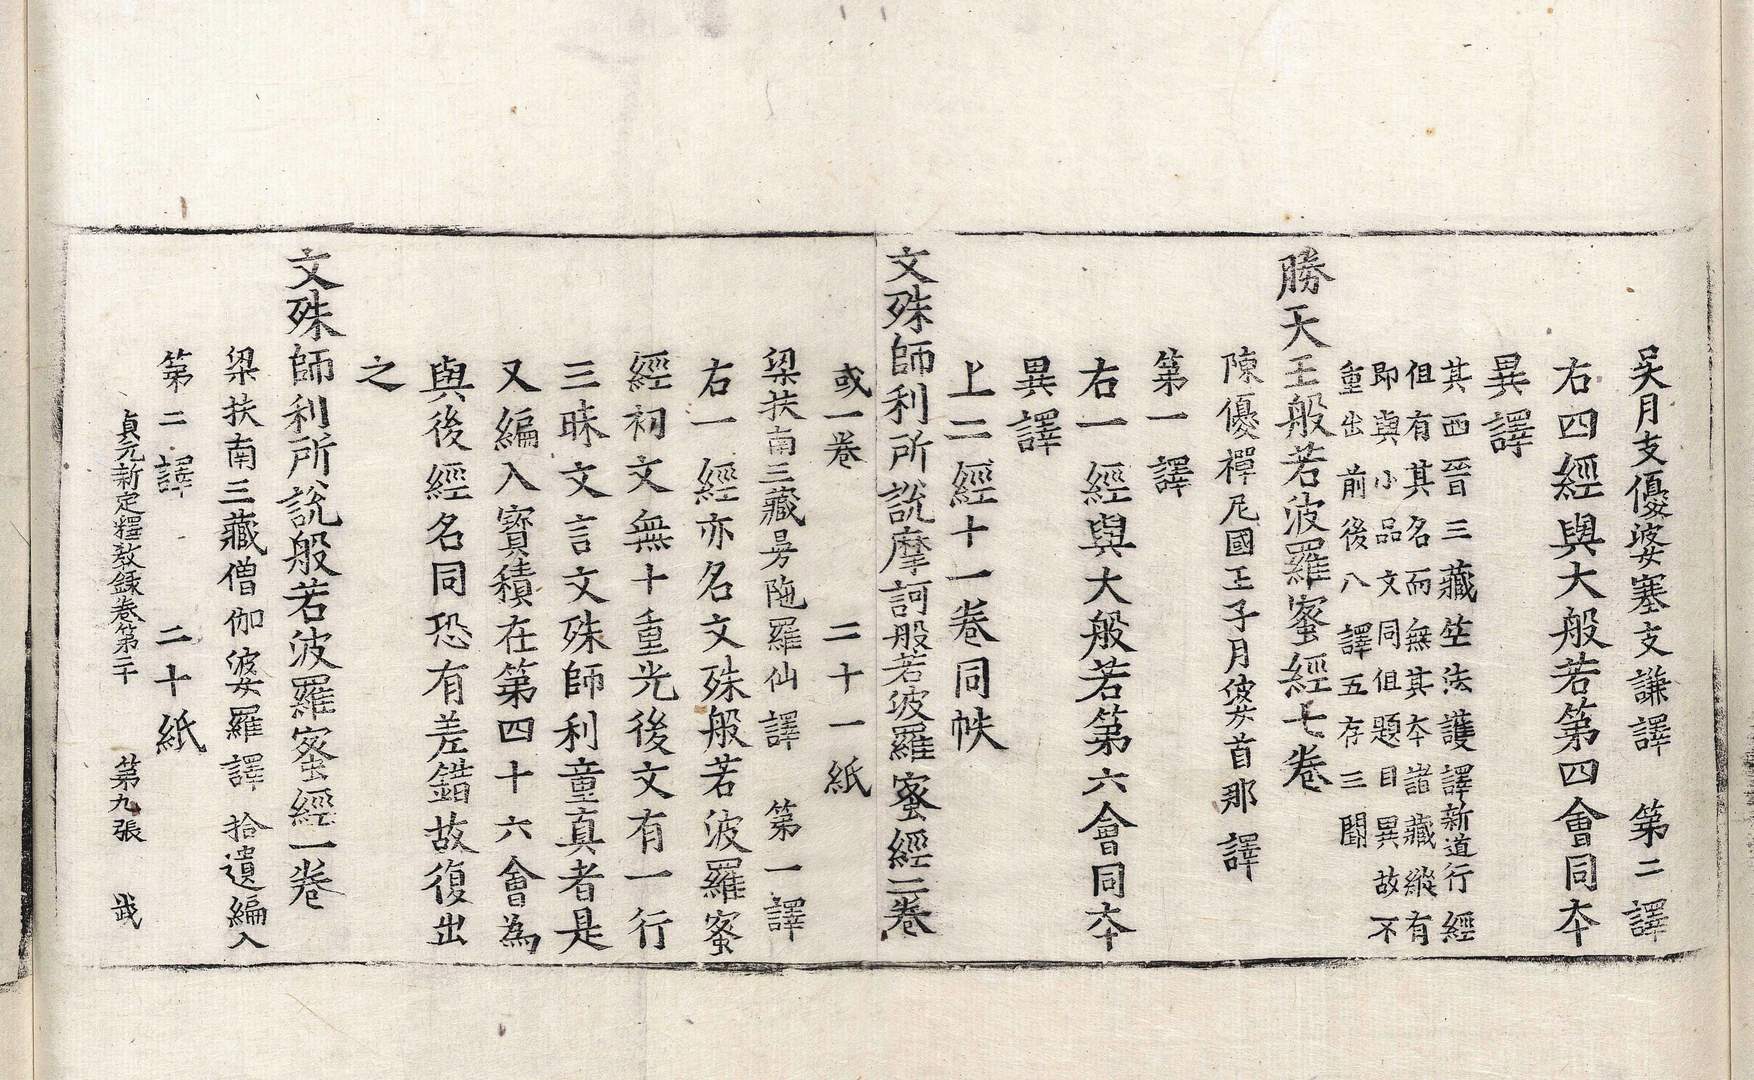 吳月支優婆塞支謙譯　第二譯
右四經與大般若第四會同本
異譯
其西晉三藏竺法護譯新道行經
但有其名而無其本諸藏縱有
即與小品文同但題目異故不
重出前後八譯五存三闕
勝天王般若波羅蜜經七卷
陳優禪尼國王子月婆首那譯
第一譯
右一經與大般若第六會同本
異譯
上二經十一卷同帙
文殊師利所說摩訶般若波羅蜜經二卷
或一卷　二十一紙
梁扶南三藏曼陁羅仙譯　第一譯
右一經亦名文殊般若波羅蜜
經初文無十重光後文有一行
三昧文言文殊師利童真者是
又編入寶積在第四十六會為
與後經名同恐有差錯故復出
之
文殊師利所說般若波羅蜜經一卷
梁扶南三藏僧伽婆羅譯　拾遺編入
第二譯　二十紙
貞元新定釋教録卷第二十　第九張　武